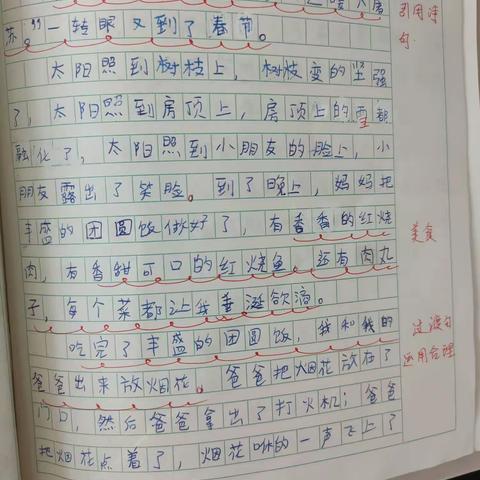 苏。"一转眼又到了春节。
引用诗句
太阳照到树枝上，树枝变的坚强
了，太阳照到房顶上，房顶上的雪都
融化了，太阳照到小朋友的脸上，小
朋友露出了笑脸。到了晚上，妈妈把
丰盛的团圆饭做好了，有香香的红烧
美食
肉，有香甜可口的红烧鱼。还有肉丸
子，每个菜都让我垂涎欲滴。
吃完了丰盛的团圆饭，我和我的
过渡句
运用合理
爸爸出来放烟花。爸爸把烟花放在了
门口，然后爸爸拿出了打火机；爸爸
把烟花点着了，烟花咻的一声飞上了